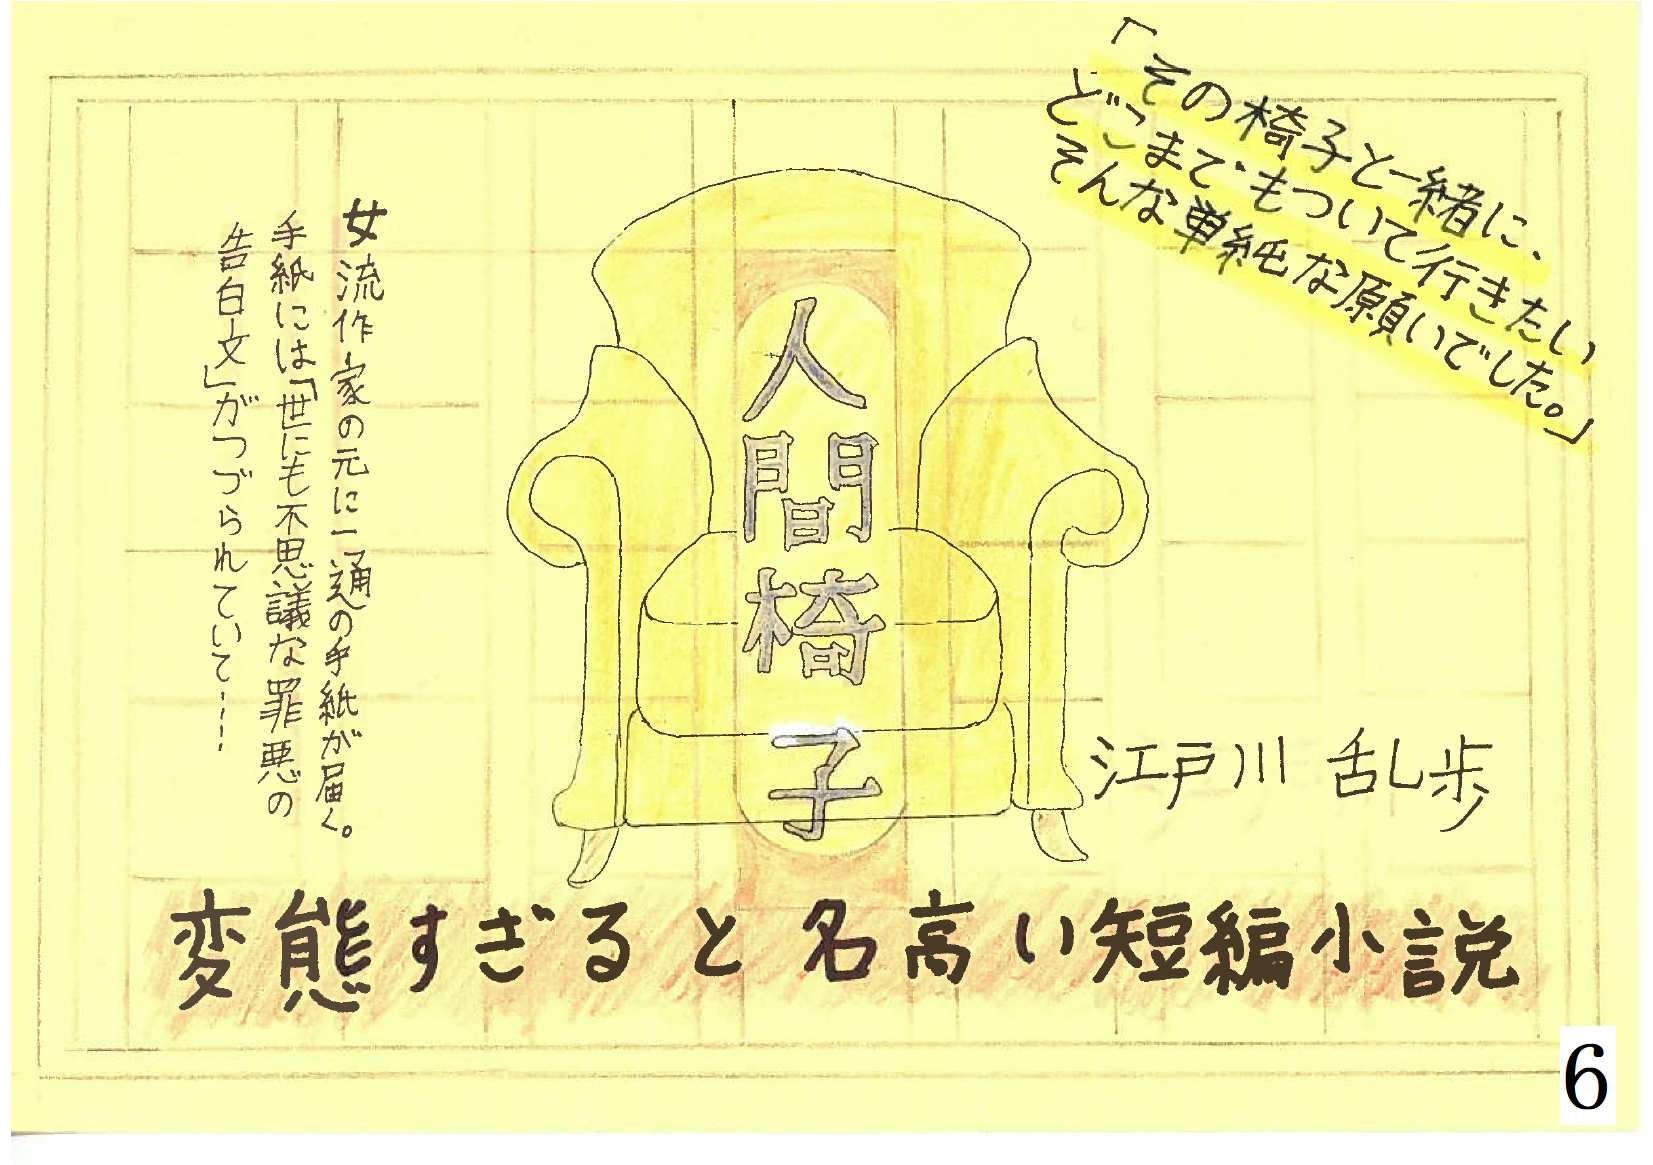 「その椅子と一緒に、
どこまでもついて行きたい
そんな単純な願いでした。」
女流作家の元に一通の手紙が届く。
手紙には「世にも不思議な罪悪の
告白文」がつづられていて……
人間椅子
江戸川 乱歩
変態すぎると名高い短編小説
6